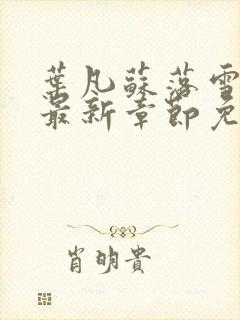 葉凡蘇落雪
最新章節免
肖明貴